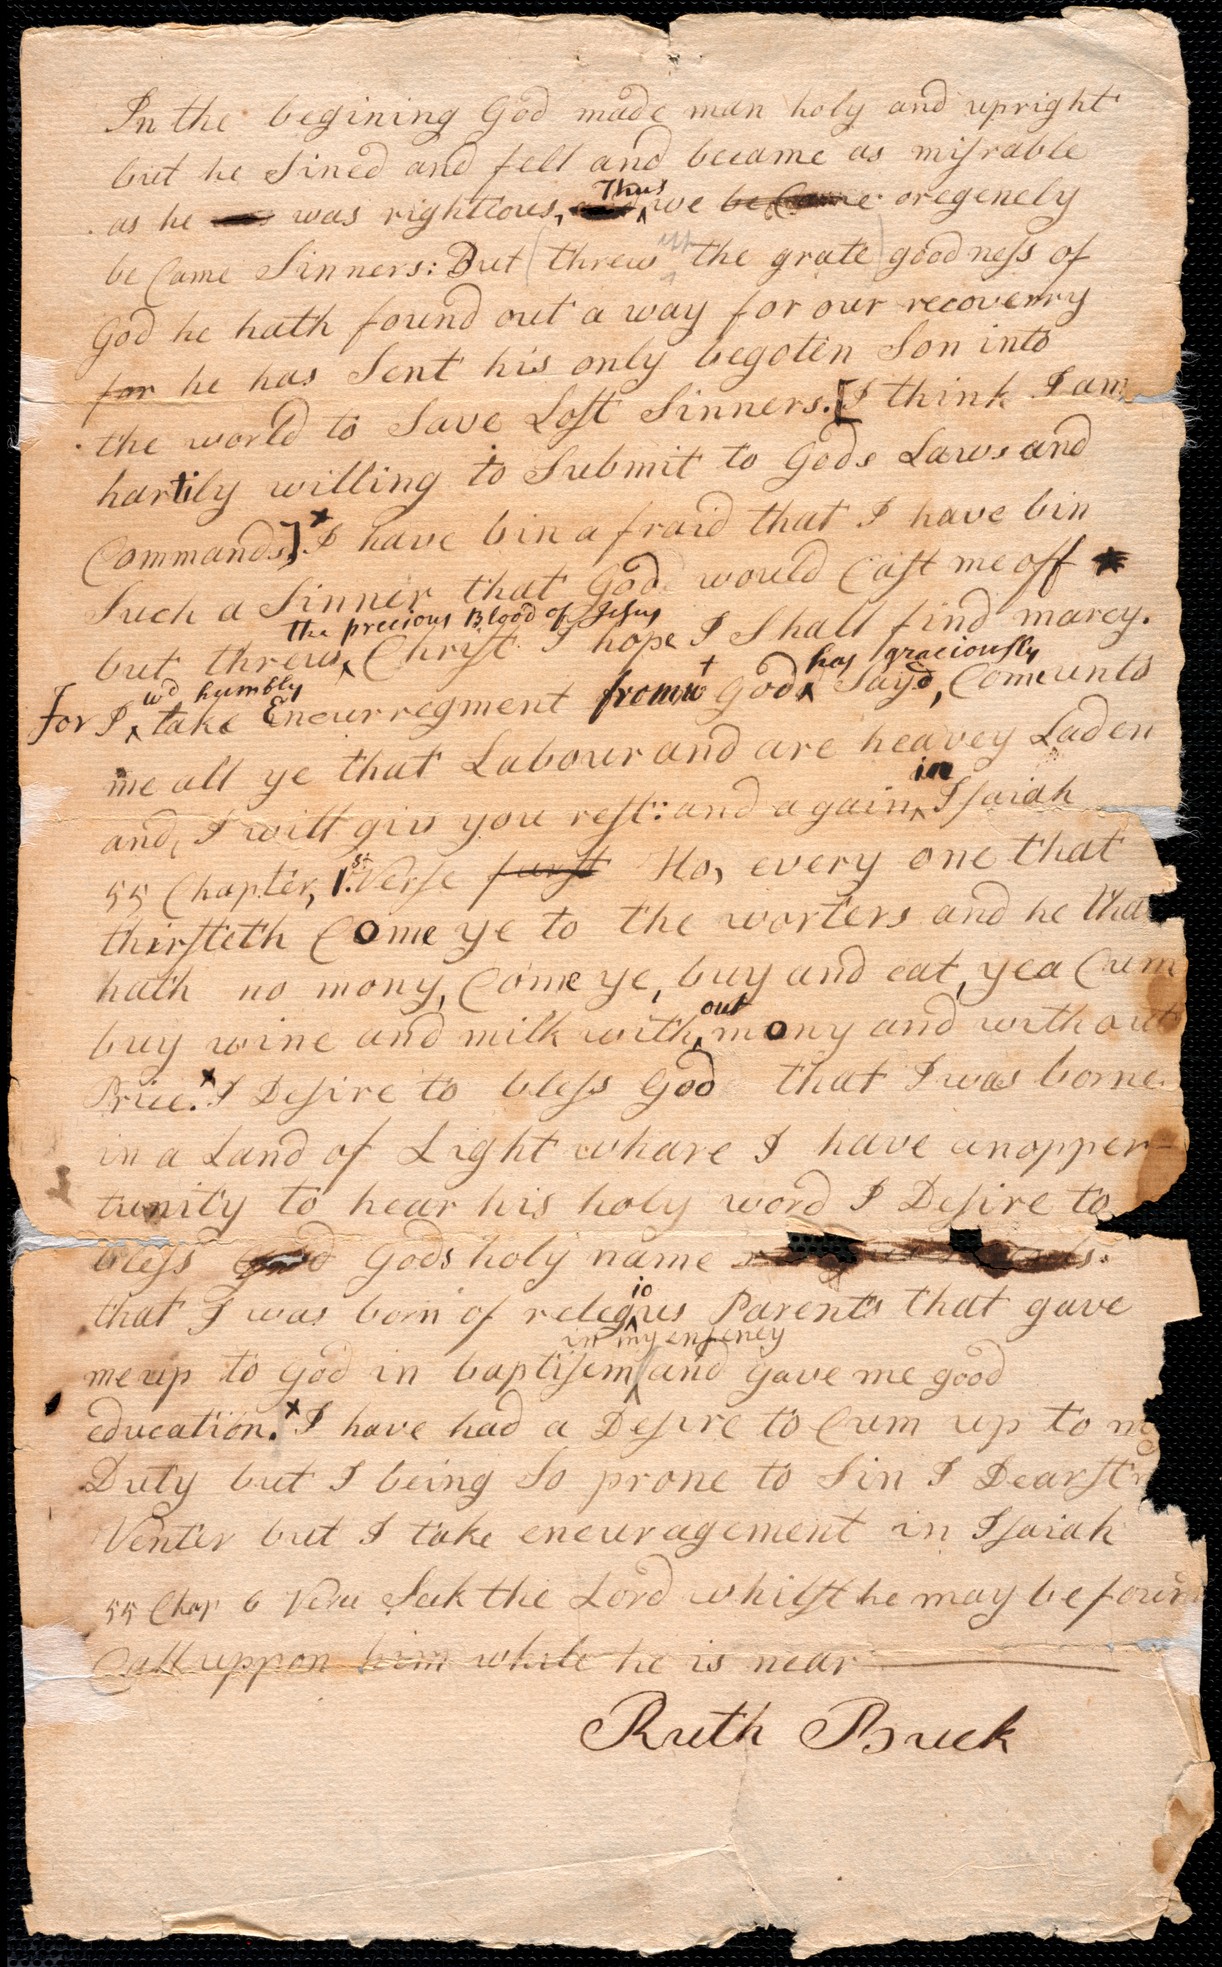 In the begining God made man holy and upright
but he Sined and fell and became as misrable
as he was rightious, Thus we be Came oregenely
be Came Sinners: But (threw the grate) goodness of
God he hath found out a way for our recovenry
for he has Sent his only begoten Son into
the world to Save Lost Sinners. [I think I am
hartily willing to Submit to Gods Laws and
Commands,] I have bin afraid that I have bin
Such a Sinner that God would Cast me off
the precious Blood of Jesus
but threw Christ I hope I Shall find marcy.
wd humbly has graciously
For I take Encurregment from wt God Said, Come unto
me all ye that Labour and are heavey Laden
and I will giv you rest: and again in Isaiah
55 Chapter, 1st Verse furst Ho, every one that
thirsteth Come ye to the worters and he that
hath no mony, Come ye, buy and eat, yea Cum
buy wine and milk without mony and without
Price. I Desire to bless God that I was borne
in a Land of Light whare I have an opper-
tunity to hear his holy word I Desire to
bless Gods holy name
that I was born of relegious Parents that gave
in my enfency
me up to God in baptisem and gave me good
education. I have had a Desire to Cum up to
Duty but I being So prone to Sin I Dearst
Venter but I take encuragement in Isaiah
55 Chap 6 Verse Seek the Lord whilst he may be found
Call uppon him while he is near
Ruth Buck